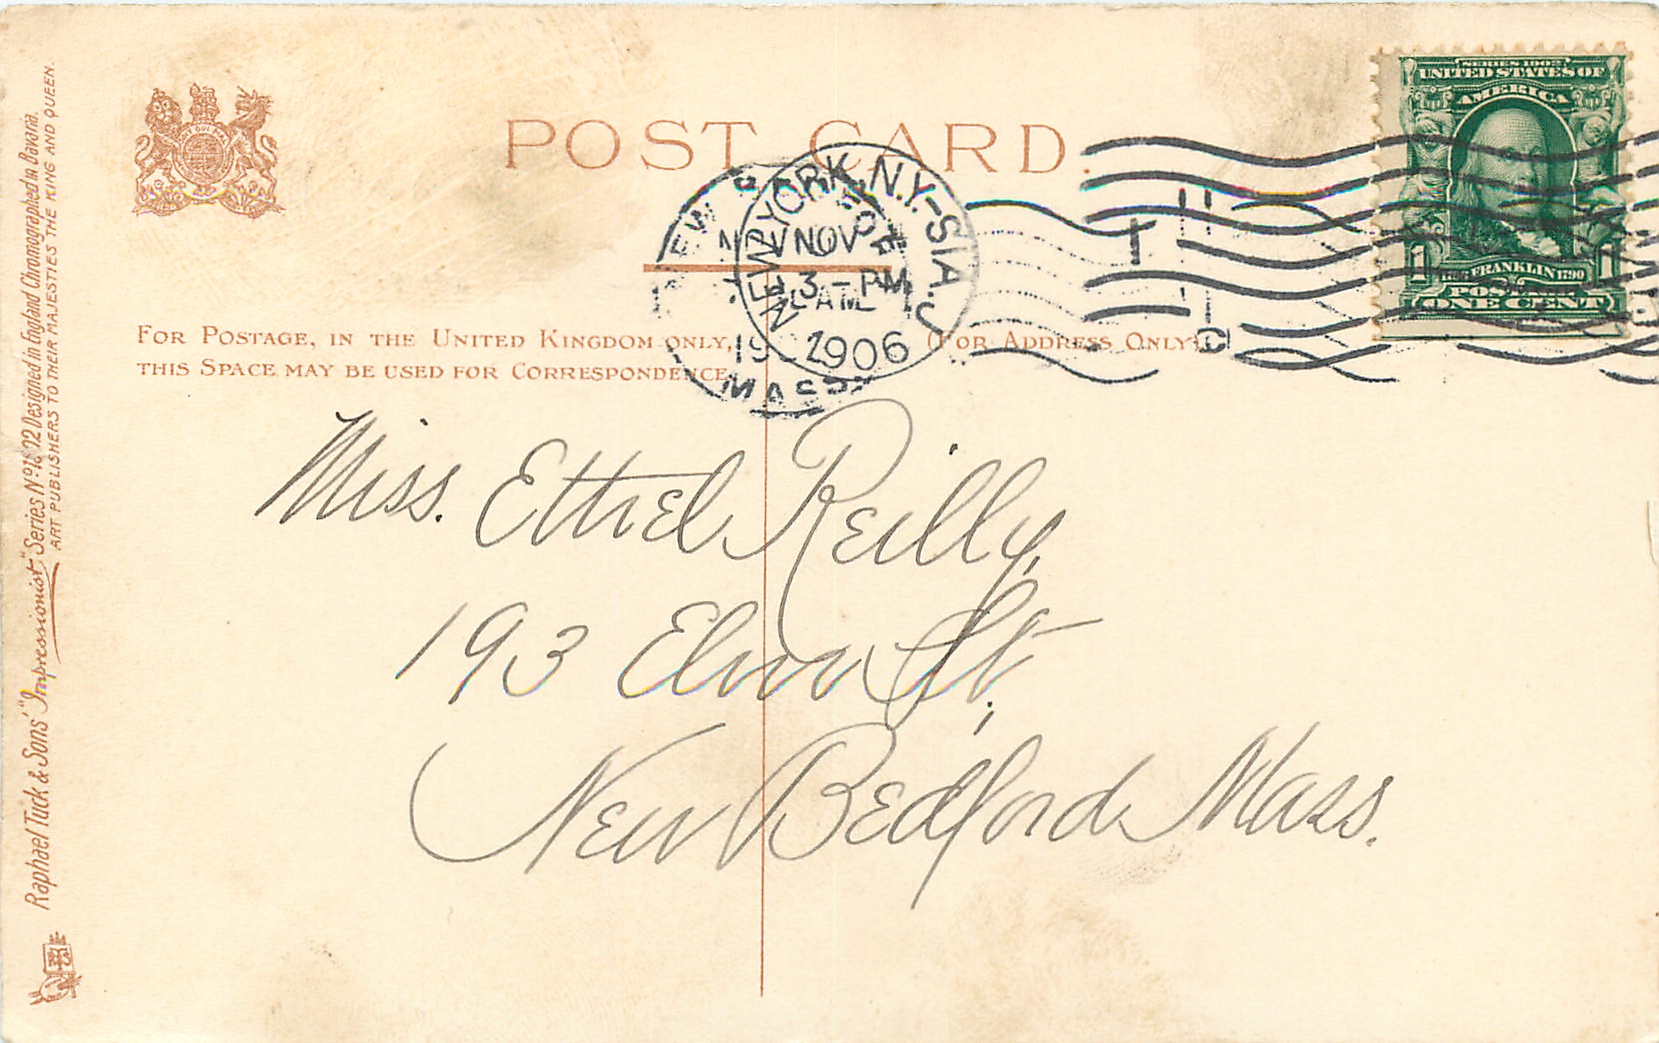 POST CARD.
SERIES 1902
UNITED STATES OF
AMERICA
FRANKLIN 1790
1 1
POSTAGE
ONE CENT
NEW YORK, N.Y.-STA. J
NOV
3 - PM
1906
NEW BEDFORD
AM
19
MASS.
FOR POSTAGE, IN THE UNITED KINGDOM ONLY, (FOR ADDRESS ONLY)
THIS SPACE MAY BE USED FOR CORRESPONDENCE
Miss. Ethel Reilly,
193 Elm St.,
New Bedford Mass.
Raphael Tuck & Sons' "Impressionist" Series Designed in England Chromographed in Bavaria.
ART PUBLISHERS TO THEIR MAJESTIES THE KING AND QUEEN.